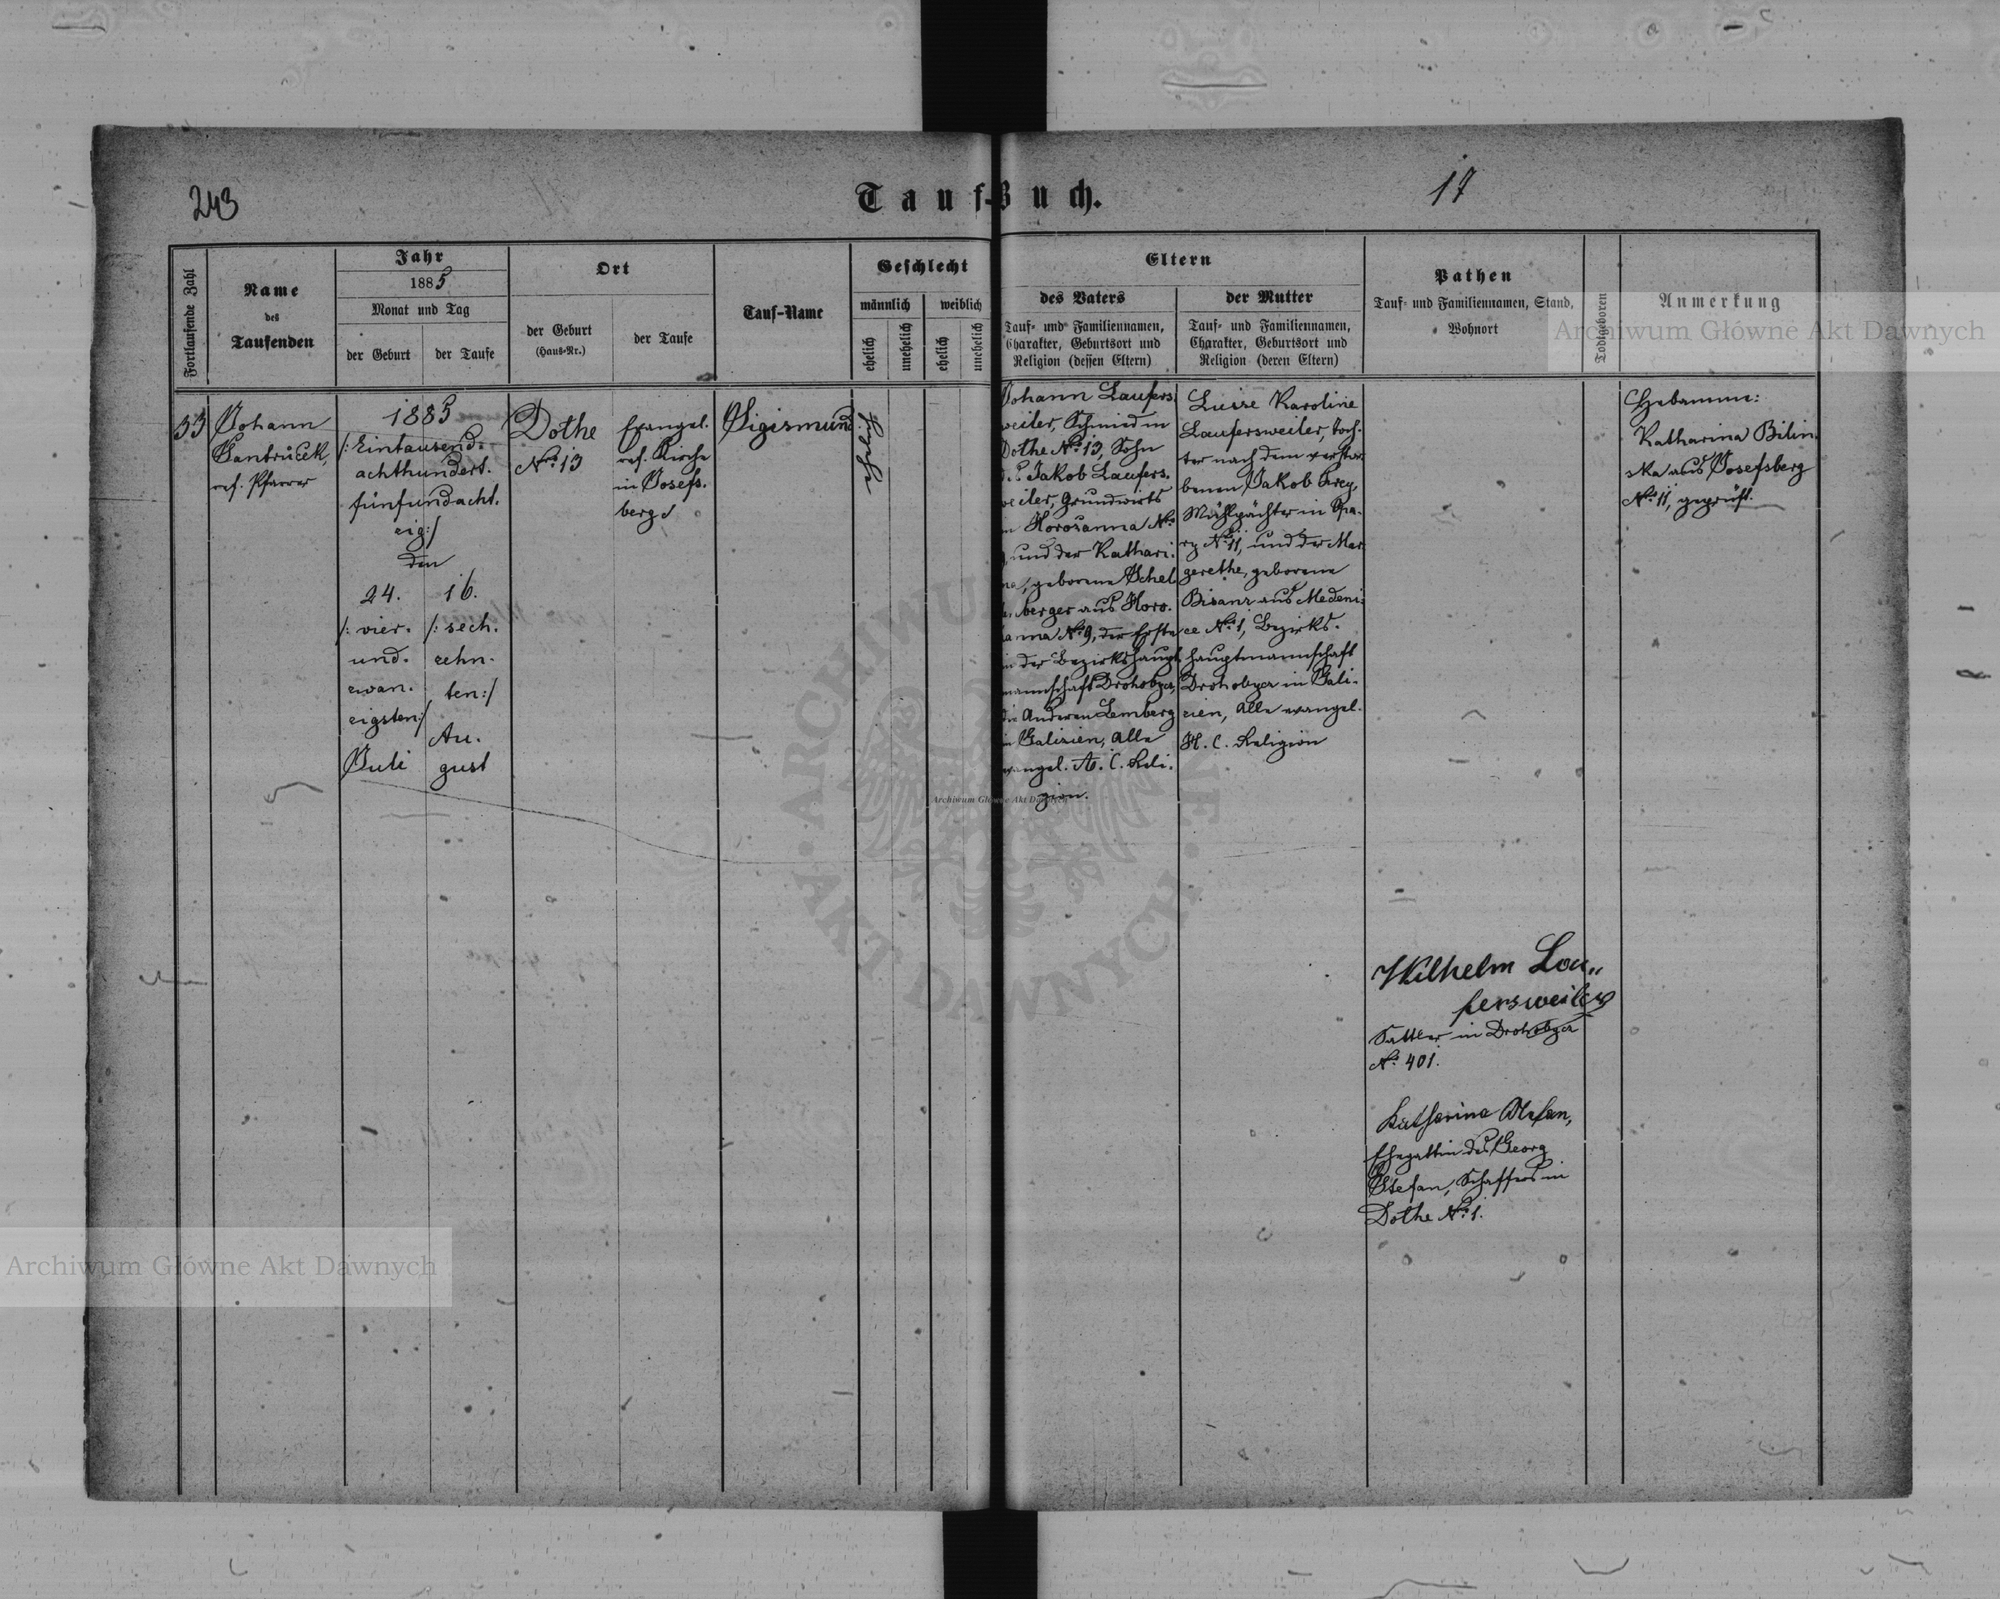 243
Tauf-Buch.
17
Fortlaufende Zahl
Name
des
Taufenden
Jahr
1885
Monat und Tag
der Geburt
der Taufe
Ort
der Geburt
(Haus-Nr.)
der Taufe
Tauf-Name
Geschlecht
männlich
weiblich
ehelich
unehelich
ehelich
unehelich
Eltern
des Vaters
Tauf- und Familiennamen,
Charakter, Geburtsort und
Religion (dessen Eltern)
der Mutter
Tauf- und Familiennamen,
Charakter, Geburtsort und
Religion (deren Eltern)
Pathen
Tauf- und Familiennamen, Stand,
Wohnort
Todtgeboren
Anmerkung
33
Johann
ref. Pfarrer
1885
/: Eintausend-
achthundert-
fünfundacht-
zig :/
den
24.
/: vier-
und-
zwan-
zigsten :/
Juli
16.
/: sech-
zehn-
ten :/
Au-
gust
Dothe
No. 13
Evangel.
ref. Kirche
in Josefs-
berg
Sigismund
ehelich
Johann Laufers-
weiler, Schmied in
Dothe No. 13, Sohn
des Jakob Laufers-
weiler, Grundwirts
in Horozanna No.
und der Kathari-
na, geborene Schel-
lenberger aus Horo-
zanna No. 9, der Erste
in der Bezirkshaupt-
mannschaft Drohobycz,
die Anderen Lemberg
in Galizien, Alle
evangel. A. C. Reli-
gion.
Luise Karoline
Laufersweiler, Toch-
ter nach dem verstor-
benen Jakob Frey,
Mühlpächter in Opa-
ry No. 11, und der Mar-
garethe, geborene
Bisanz aus Medeni-
ce No. 1, Bezirks-
hauptmannschaft
Drohobycz in Gali-
zien, Alle evangel.
H. C. Religion
Wilhelm Lau-
fersweiler
Sattler in Drohobycz
No. 401.
Katharina Stefan,
Ehegattin des Georg
Stefan, Schaffers in
Dothe No. 1.
Hebamme:
Katharina Bilin-
ska aus Josefsberg
No. 11, geprüft.
Archiwum Główne Akt Dawnych
Archiwum Główne Akt Dawnych
Archiwum Główne Akt Dawnych
ARCHIWUM GŁÓWNE · AKT DAWNYCH ·